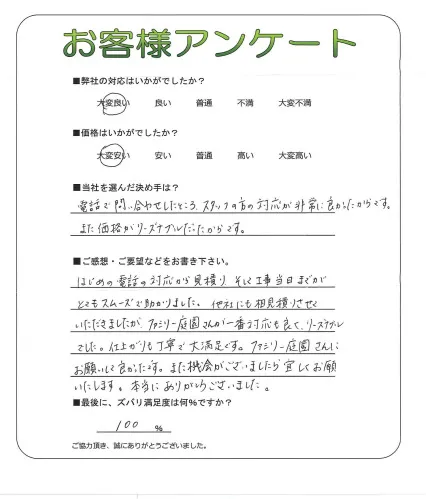 お客様アンケート
■弊社の対応はいかがでしたか?
大変良い 良い 普通 不満 大変不満
■価格はいかがでしたか?
大変安い 安い 普通 高い 大変高い
■当社を選んだ決め手は?
電話で問い合わせしたところ、スタッフの方の対応が非常に良かったからです。
また価格がリーズナブルだったからです。
■ご感想・ご要望などをお書き下さい。
はじめの電話の対応から見積り、そして工事当日までが
とてもスムーズで助かりました。他社にも相見積りさせて
いただきましたが、ファミリー庭園さんが一番対応も良く、リーズナブル
でした。仕上がりも丁寧で大満足です。ファミリー庭園さんに
お願いして良かったです。また機会がございましたら宜しくお願
いたします。本当にありがとうございました。
■最後に、ズバリ満足度は何%ですか?
100 %
ご協力頂き、誠にありがとうございました。